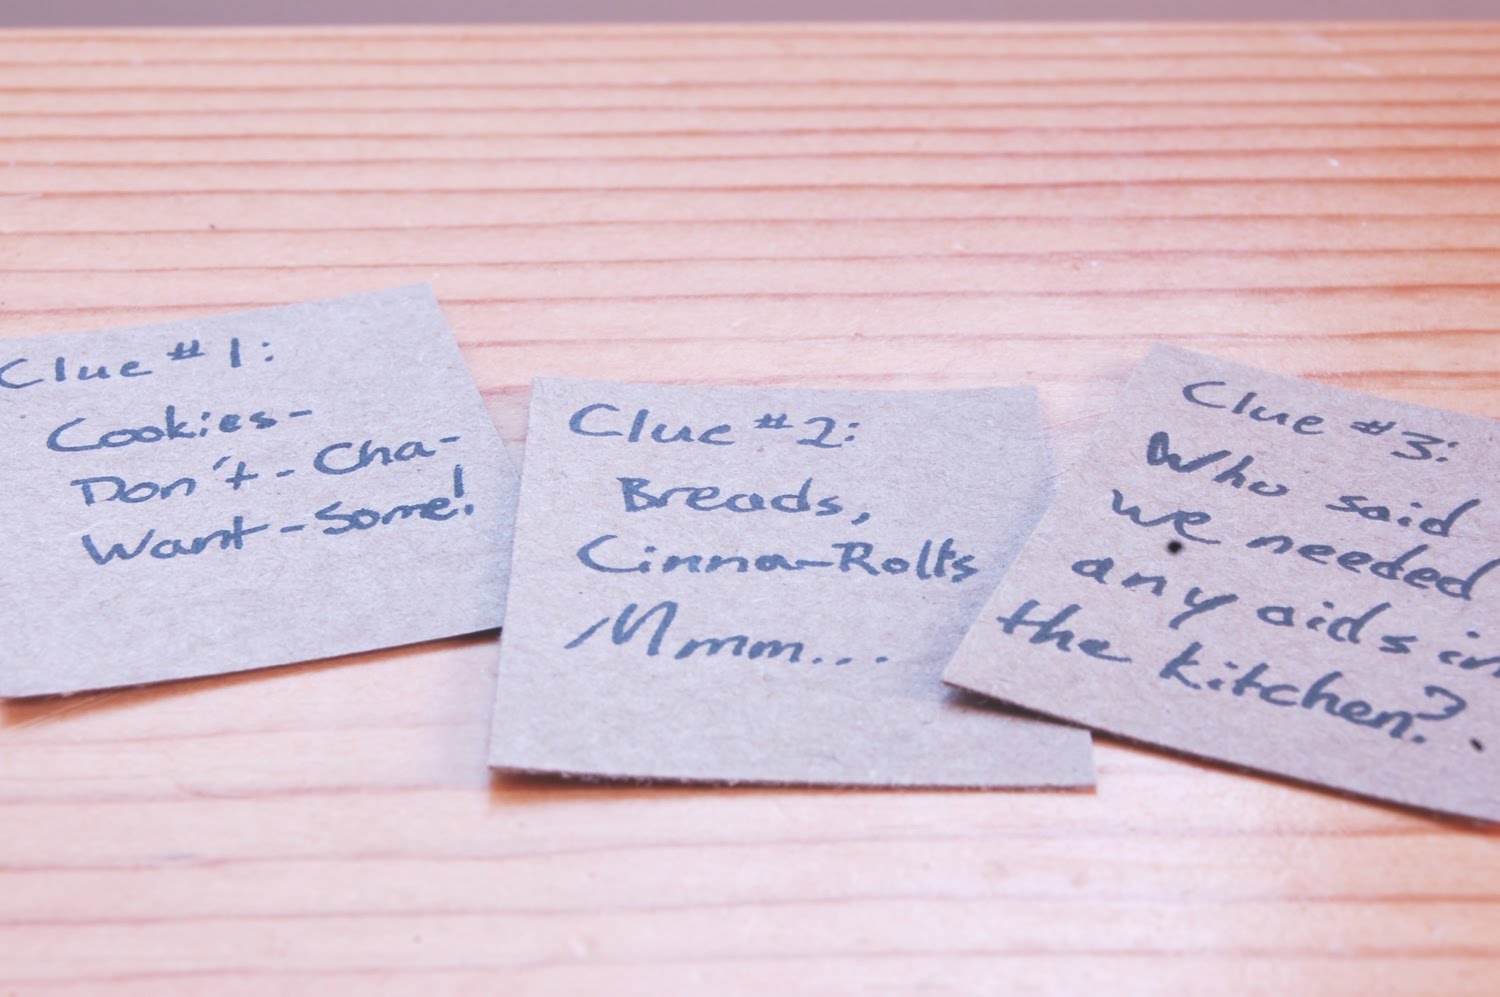 Clue #1:
Cookies-
Don't-Cha-
Want-Some!
Clue #2:
Breads,
Cinna-Rolls
Mmm...
Clue #3:
Who said
we needed
any aids in
the kitchen?